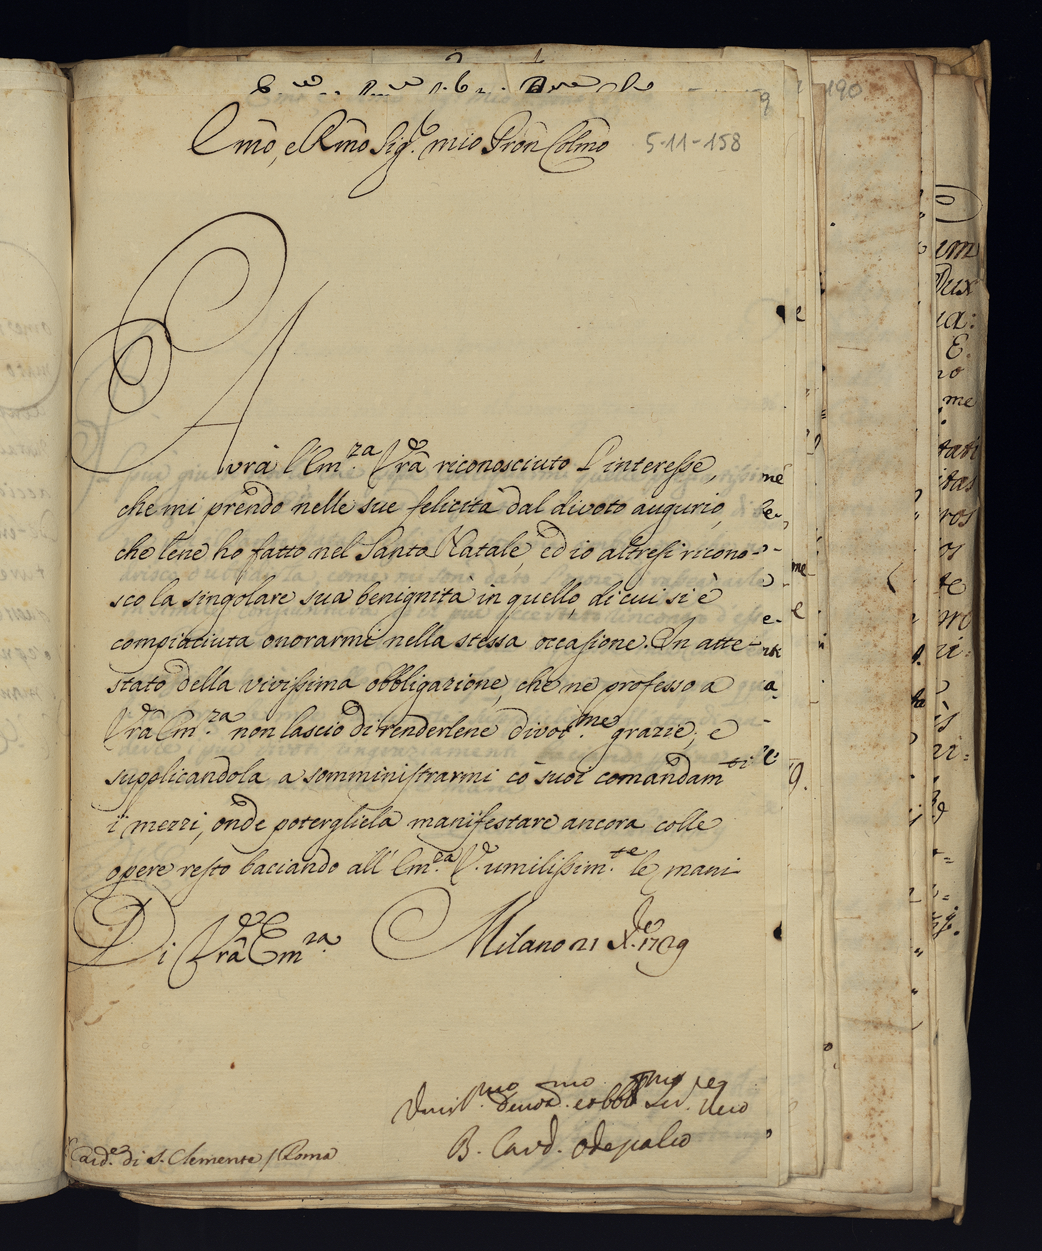 190
Em̃o, e Rm̃o Sig.re mio Pron̄ Colm̃o
5-11-158
Avrà l'Em.za Vr̃a riconosciuto l'interesse,
che mi prendo nelle sue felicità dal divoto augurio,
che lene ho fatto nel Santo Natale, ed io altresi ricono-
sco la singolare sua benignità in quello, di cui si è
compiaciuta onorarmi nella stessa occasione. In atte-
stato della vivissima obbligazione, che ne professo a
Vr̃a Em.za non lascio di renderlene divot.me grazie; e
supplicandola a somministrarmi co' suoi comandam.ti
i mezzi, onde potergliela manifestare ancora colle
opere resto baciando all'Em.za V.ra umilissim.te le mani
Di Vr̃a Em.za Milano 21 X.re 1729
Umil.mo devot.mo et obb.mo Ser.re vero
B. Card. Odescalco
Card.e di S. Clemente / Roma